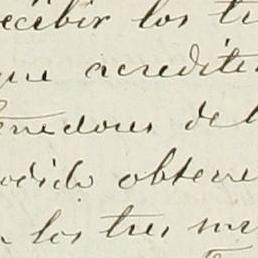 ecibir los tr
que acredite
enedores del
odido obtene
los tres mi